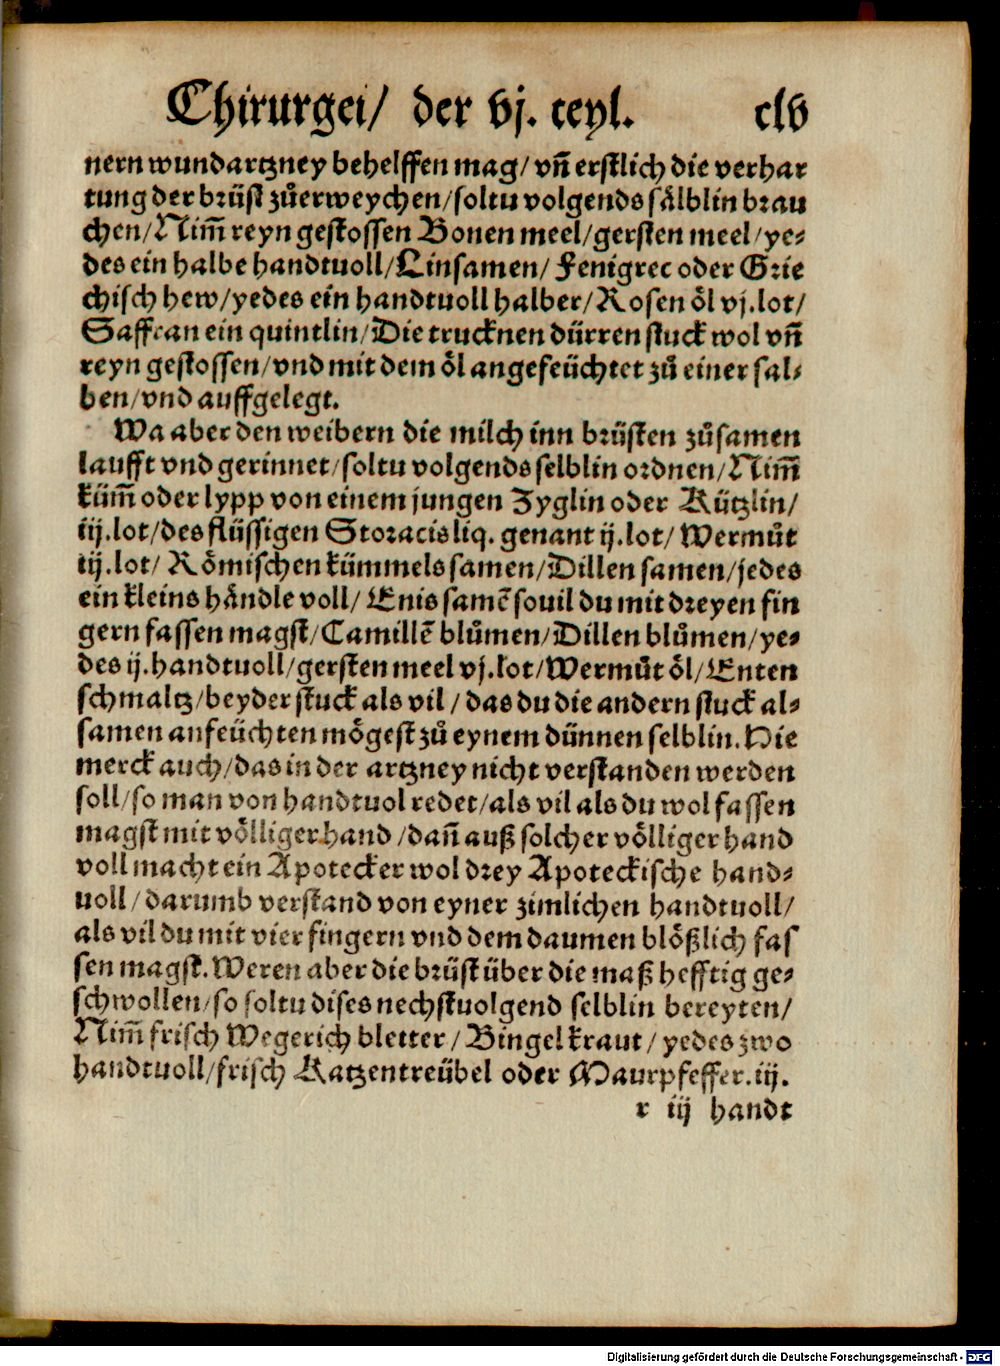 Chirurgei/ der vj. teyl. clv
nern wundartzney behelffen mag/ vñ erstlich die verhar
tung der brüst zůerweychen/soltu volgends sälblin brau
chen/Nim̃ reyn gestossen Bonen meel/gersten meel/ye⸗
des ein halbe handtuoll/Linsamen/ Fenigrec oder Grie
chisch hew/yedes ein handtuoll halber/Rosen öl vj.lot/
Saffran ein quintlin/Die trucknen dürren stuck wol vñ
reyn gestossen/vnd mit dem öl angefeüchtet zů einer sal⸗
ben/vnd auffgelegt.
Wa aber den weibern die milch inn brüsten zůsamen
laufft vnd gerinnet/soltu volgends selblin ordnen/Nim̃
küm̃ oder lypp von einem jungen Zyglin oder Kützlin/
iij.lot/des flüssigen Storacis liq. genant ij.lot/ Wermůt
iij.lot/ Römischen kümmels samen/Dillen samen/jedes
ein kleins håndle voll/ Enis samẽ souil du mit dreyen fin
gern fassen magst/Camillẽ blůmen/Dillen blůmen/ye⸗
des ij.handtuoll/gersten meel vj.lot/Wermůt öl/Enten
schmaltz/beyder stuck als vil / das du die andern stuck al⸗
samen anfeüchten mögest zů eynem dünnen selblin. Hie
merck auch/das in der artzney nicht verstanden werden
soll/so man von handtuol redet/als vil als du wol fassen
magst mit völliger hand /dañ auß solcher völliger hand
voll macht ein Apotecker wol drey Apoteckische hand⸗
uoll/darumb verstand von eyner zimlichen handtuoll/
als vil du mit vier fingern vnd dem daumen blößlich fas
sen magst. Weren aber die brüst über die maß hefftig ge⸗
schwollen/so soltu dises nechstuolgend selblin bereyten/
Nim̃ frisch Wegerich bletter/ Bingelkraut/ yedes zwo
handtuoll/frisch Katzentreübel oder Maurpfeffer.iij.
r iij handt
Digitalisierung gefördert durch die Deutsche Forschungsgemeinschaft - DFG